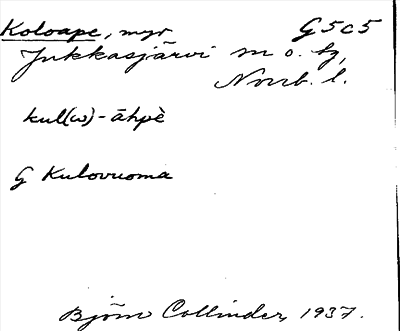 Koloape, myr G5c5
Jukkasjärvi sn o. tg,
Norrb. l.
kul(w)-āhpè
G Kulovuoma
Björn Collinder, 1937.